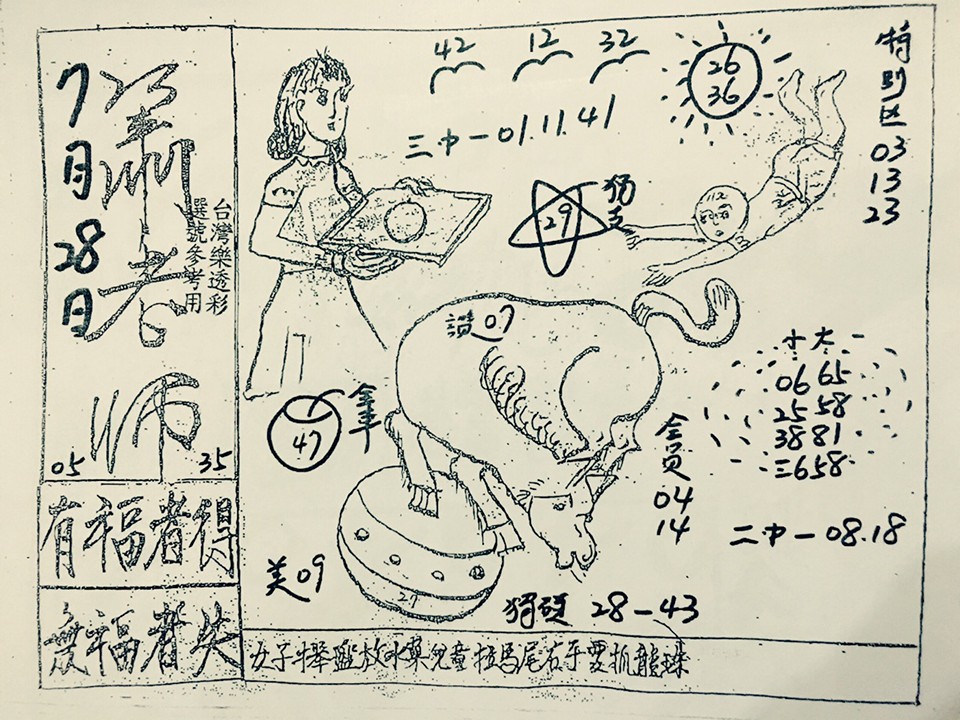 7月28日
蕭老师
台灣樂透彩
選號參考用
05 35
有福者得
無福者失
42 12 32
三中一 01.11.41
26
36
特別区
03
13
23
29 獨支
讚07
全車
47
美09
27
十六一
06 65
25 58
38 81
三658
会员
04
14
二中一 08.18
獨碰 28-43
女子捧盤放水菓兒童拉馬尾右手要抓龍珠